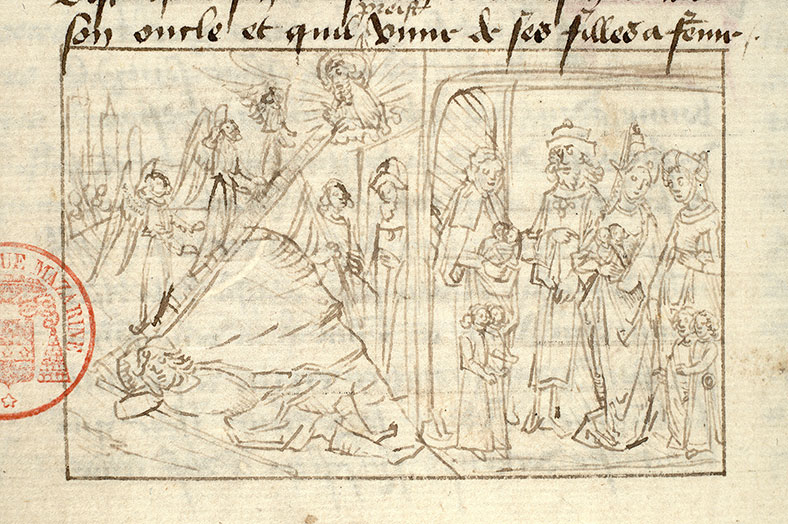 preist
son oncle et quil une de ses filles a feme
QUE MAZARINE